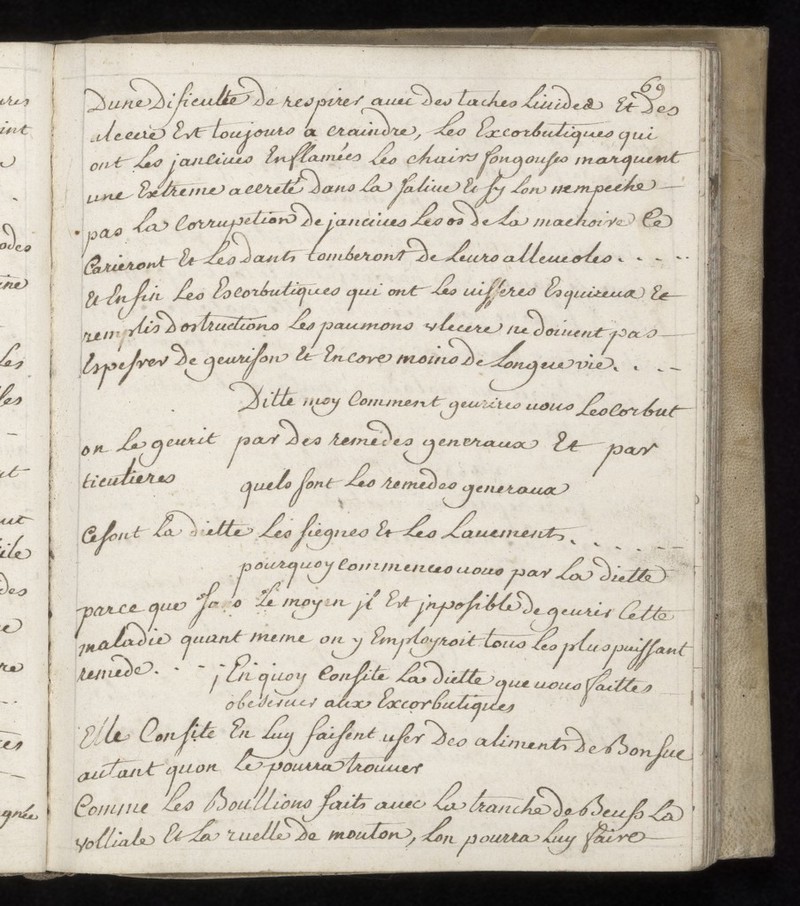 69
Dune Dificulte De respirer auec des taches liuides Et Des
ulcere Est toujours a craindre, Les Excorbutiques qui
ont Les janciues Enflamées Les chairs fongouses marquent
une Extreme accreté Dans La saliue Et sy Lon nempeche
pas La Corrupetion De janciues Les os de La machoire Ce
Carieront Et Les Dants tomberont de Leurs alleueoles . . . . .
Et Enfin Les Escorbutiques qui ont Les uisseres Esquireux Et
remplis Dostructions Les paumons ulcere ne doiuent pas
Espesrer De geurison Et Encore moins de Longue vie. . . .
Ditte moy Comment geurires uous Lescorbut
on Le geurit par Des remedes generaux Et par
ticulieres
quels sont Les remedes generaux
Ce sont La diette Les siegnes Et Les Lauements. . . . . .
pourquoy commences uous par La diette
parce que sans Le moyen jl Est jnposible De geurir Cette
maladie quant meme on y Employroit tous Les plus puissant
remede. . . .
En quoy Consite La diette que uous faittes
obeseruer aux Excorbutiques
Elle Consite En Luy faisent user Des aliments De Bon suc
autant quon Le pourra trouuer
Comme Les Boullions faits auec La tranche de Beufs La
volliale Et La ruelle De mouton, Lon pourra Luy faire
ures
int
odes
ine
Les
les
ut
ile
des
re
ces
gnée